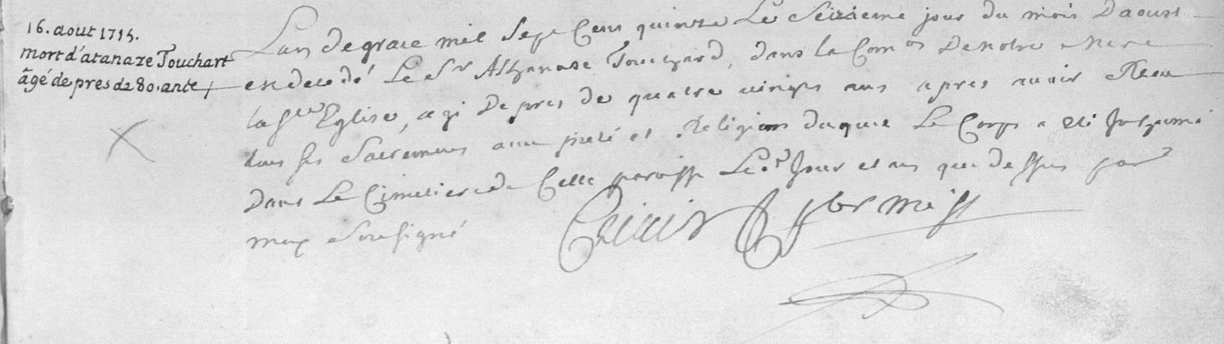 16. aout 1715.
mort d'atanaze Touchart
âgé de pres de 80. ante
Lan de grace mil Sept Cens quinze Le Seizieme jour du mois Daoust
en decedé Le Sr Athanase Touchard, dans la Com on De notre mere
la Ste Eglise, agé De pres de quatre vingts ans apres avoir Receu
tous ses Sacremens avec pieté et Religion duquel Le Corps a eté Inhumé
Dans Le Cimetiere de Cette paroisse Les Jour et an que dessus par
moy Sousigné